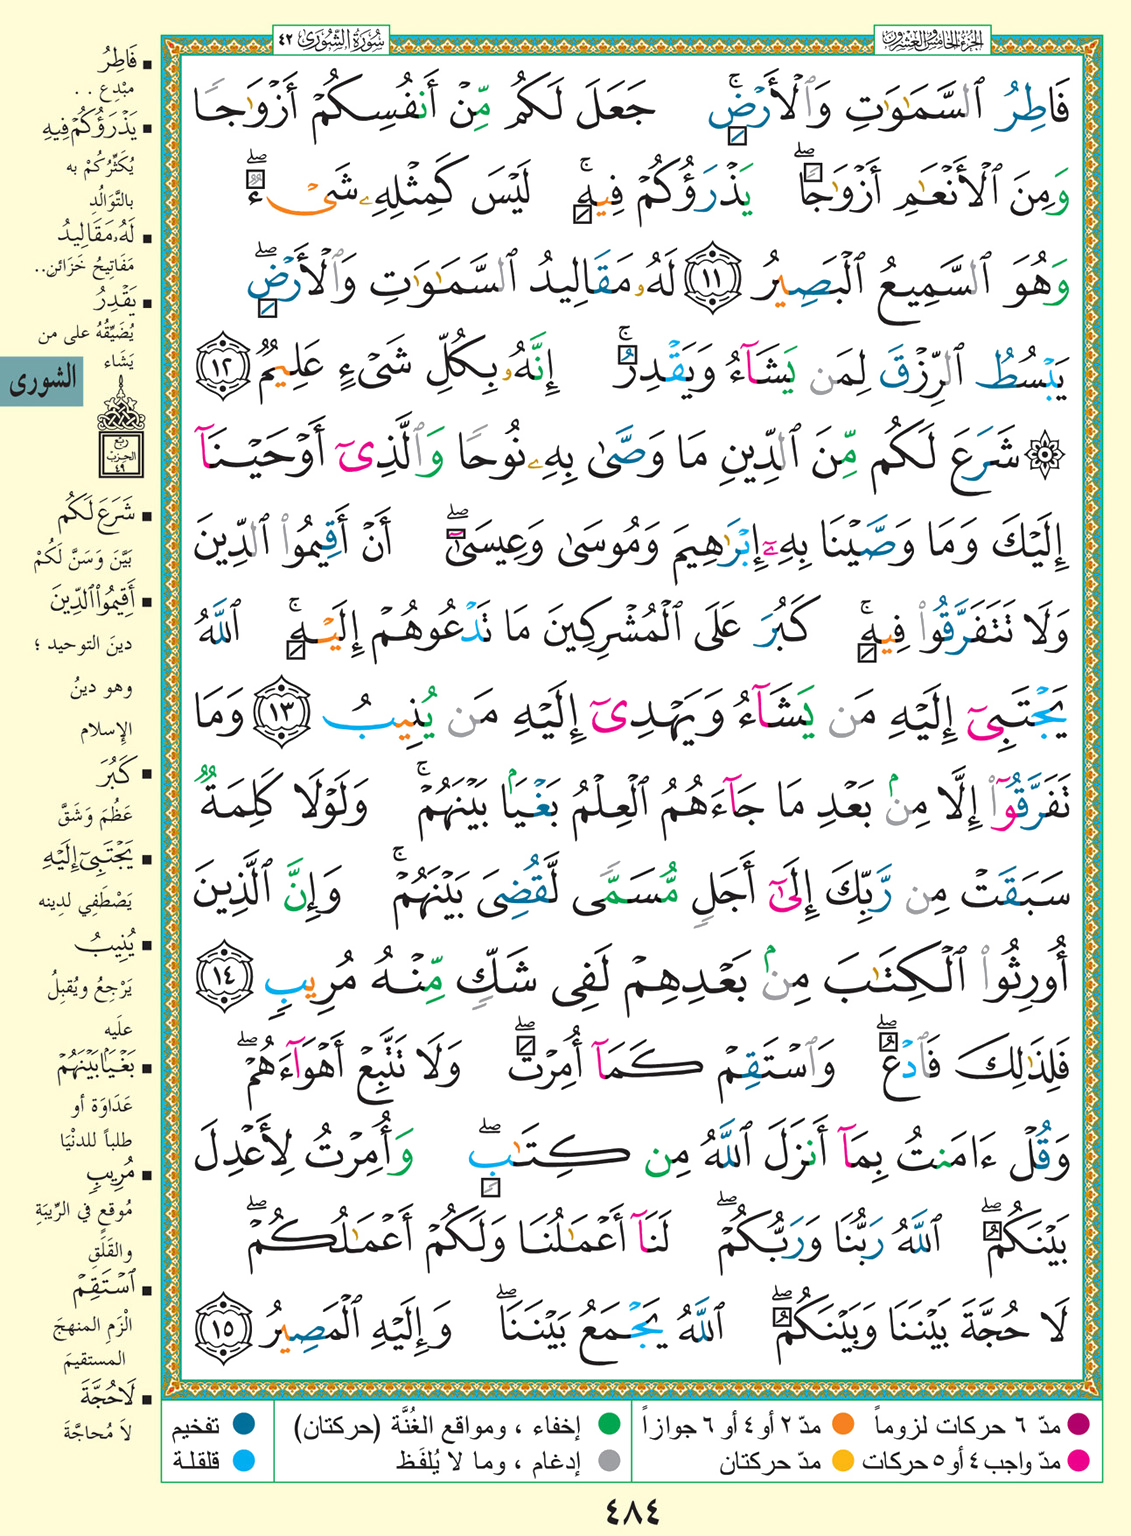 الجزء الخامس والعشرون
سُورَةُ الشُّورَىٰ ٤٢
فَاطِرُ ٱلسَّمَٰوَٰتِ وَٱلْأَرْضِۚ جَعَلَ لَكُم مِّنْ أَنفُسِكُمْ أَزْوَٰجًا
وَمِنَ ٱلْأَنْعَٰمِ أَزْوَٰجًاۖ يَذْرَؤُكُمْ فِيهِۚ لَيْسَ كَمِثْلِهِۦ شَىْءٌۖ
وَهُوَ ٱلسَّمِيعُ ٱلْبَصِيرُ ١١ لَهُۥ مَقَالِيدُ ٱلسَّمَٰوَٰتِ وَٱلْأَرْضِۖ
يَبْسُطُ ٱلرِّزْقَ لِمَن يَشَآءُ وَيَقْدِرُۚ إِنَّهُۥ بِكُلِّ شَىْءٍ عَلِيمٌ ١٢
۞ شَرَعَ لَكُم مِّنَ ٱلدِّينِ مَا وَصَّىٰ بِهِۦ نُوحًا وَٱلَّذِىٓ أَوْحَيْنَآ
إِلَيْكَ وَمَا وَصَّيْنَا بِهِۦٓ إِبْرَٰهِيمَ وَمُوسَىٰ وَعِيسَىٰٓۖ أَنْ أَقِيمُوا۟ ٱلدِّينَ
وَلَا تَتَفَرَّقُوا۟ فِيهِۚ كَبُرَ عَلَى ٱلْمُشْرِكِينَ مَا تَدْعُوهُمْ إِلَيْهِۚ ٱللَّهُ
يَجْتَبِىٓ إِلَيْهِ مَن يَشَآءُ وَيَهْدِىٓ إِلَيْهِ مَن يُنِيبُ ١٣ وَمَا
تَفَرَّقُوٓا۟ إِلَّا مِنۢ بَعْدِ مَا جَآءَهُمُ ٱلْعِلْمُ بَغْيًۢا بَيْنَهُمْۚ وَلَوْلَا كَلِمَةٌ
سَبَقَتْ مِن رَّبِّكَ إِلَىٰٓ أَجَلٍ مُّسَمًّى لَّقُضِىَ بَيْنَهُمْۚ وَإِنَّ ٱلَّذِينَ
أُورِثُوا۟ ٱلْكِتَٰبَ مِنۢ بَعْدِهِمْ لَفِى شَكٍّ مِّنْهُ مُرِيبٍ ١٤
فَلِذَٰلِكَ فَٱدْعُۖ وَٱسْتَقِمْ كَمَآ أُمِرْتَۖ وَلَا تَتَّبِعْ أَهْوَآءَهُمْۖ
وَقُلْ ءَامَنتُ بِمَآ أَنزَلَ ٱللَّهُ مِن كِتَٰبٍۖ وَأُمِرْتُ لِأَعْدِلَ
بَيْنَكُمُۖ ٱللَّهُ رَبُّنَا وَرَبُّكُمْۖ لَنَآ أَعْمَٰلُنَا وَلَكُمْ أَعْمَٰلُكُمْۖ
لَا حُجَّةَ بَيْنَنَا وَبَيْنَكُمُۖ ٱللَّهُ يَجْمَعُ بَيْنَنَاۖ وَإِلَيْهِ ٱلْمَصِيرُ ١٥
▪ فَاطِرُ
مبْدِع . .
▪ يَذْرَؤُكُمْ فِيهِ
يُكَثِّرُكُمْ به
بالتَّوَالُدِ
▪ لَهُۥ مَقَالِيدُ
مَفَاتِيحُ خَزَائن..
▪ يَقْدِرُ
يُضَيِّقُهُ على من
يَشَاء
الشورى
ربع
الحزب
٤٩
▪ شَرَعَ لَكُم
بَيَّنَ وَسَنَّ لَكُمْ
▪ أَقِيمُوا۟ ٱلدِّينَ
دينَ التوحيد ؛
وهو دينُ
الإسلام
▪ كَبُرَ
عَظُمَ وَشَقَّ
▪ يَجْتَبِىٓ إِلَيْهِ
يَصْطَفِي لدِينه
▪ يُنِيبُ
يَرْجِعُ ويُقبِلُ
علَيه
▪ بَغْيًۢا بَيْنَهُمْ
عَدَاوَة أو
طلباً للدنْيَا
▪ مُرِيبٍ
مُوقعٍ في الرِّيبَةِ
والقَلَقِ
▪ ٱسْتَقِمْ
الْزَمِ المنهجَ
المستقيمَ
▪ لَا حُجَّةَ
لاَ مُحاجَّةَ
مدّ ٦ حركات لزوماً
مدّ ٢ أو ٤ أو ٦ جوازاً
إخفاء ، ومواقع الغُنَّة (حركتان)
تفخيم
مدّ واجب ٤ أو ٥ حركات
مدّ حركتان
إدغام ، وما لا يُلفَظ
قلقلة
٤٨٤